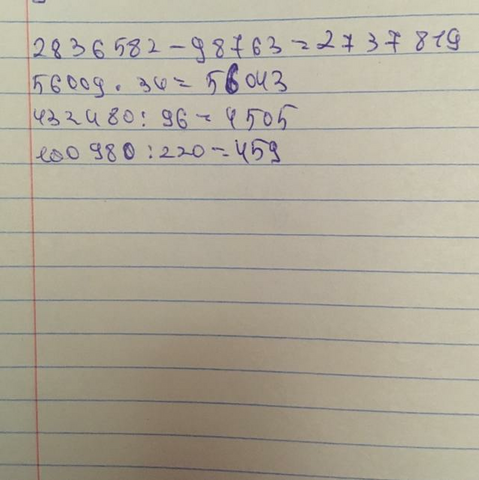 2836582-98763=2737819
56009 · 34= 56043
432480: 96=4505
100980:220=459